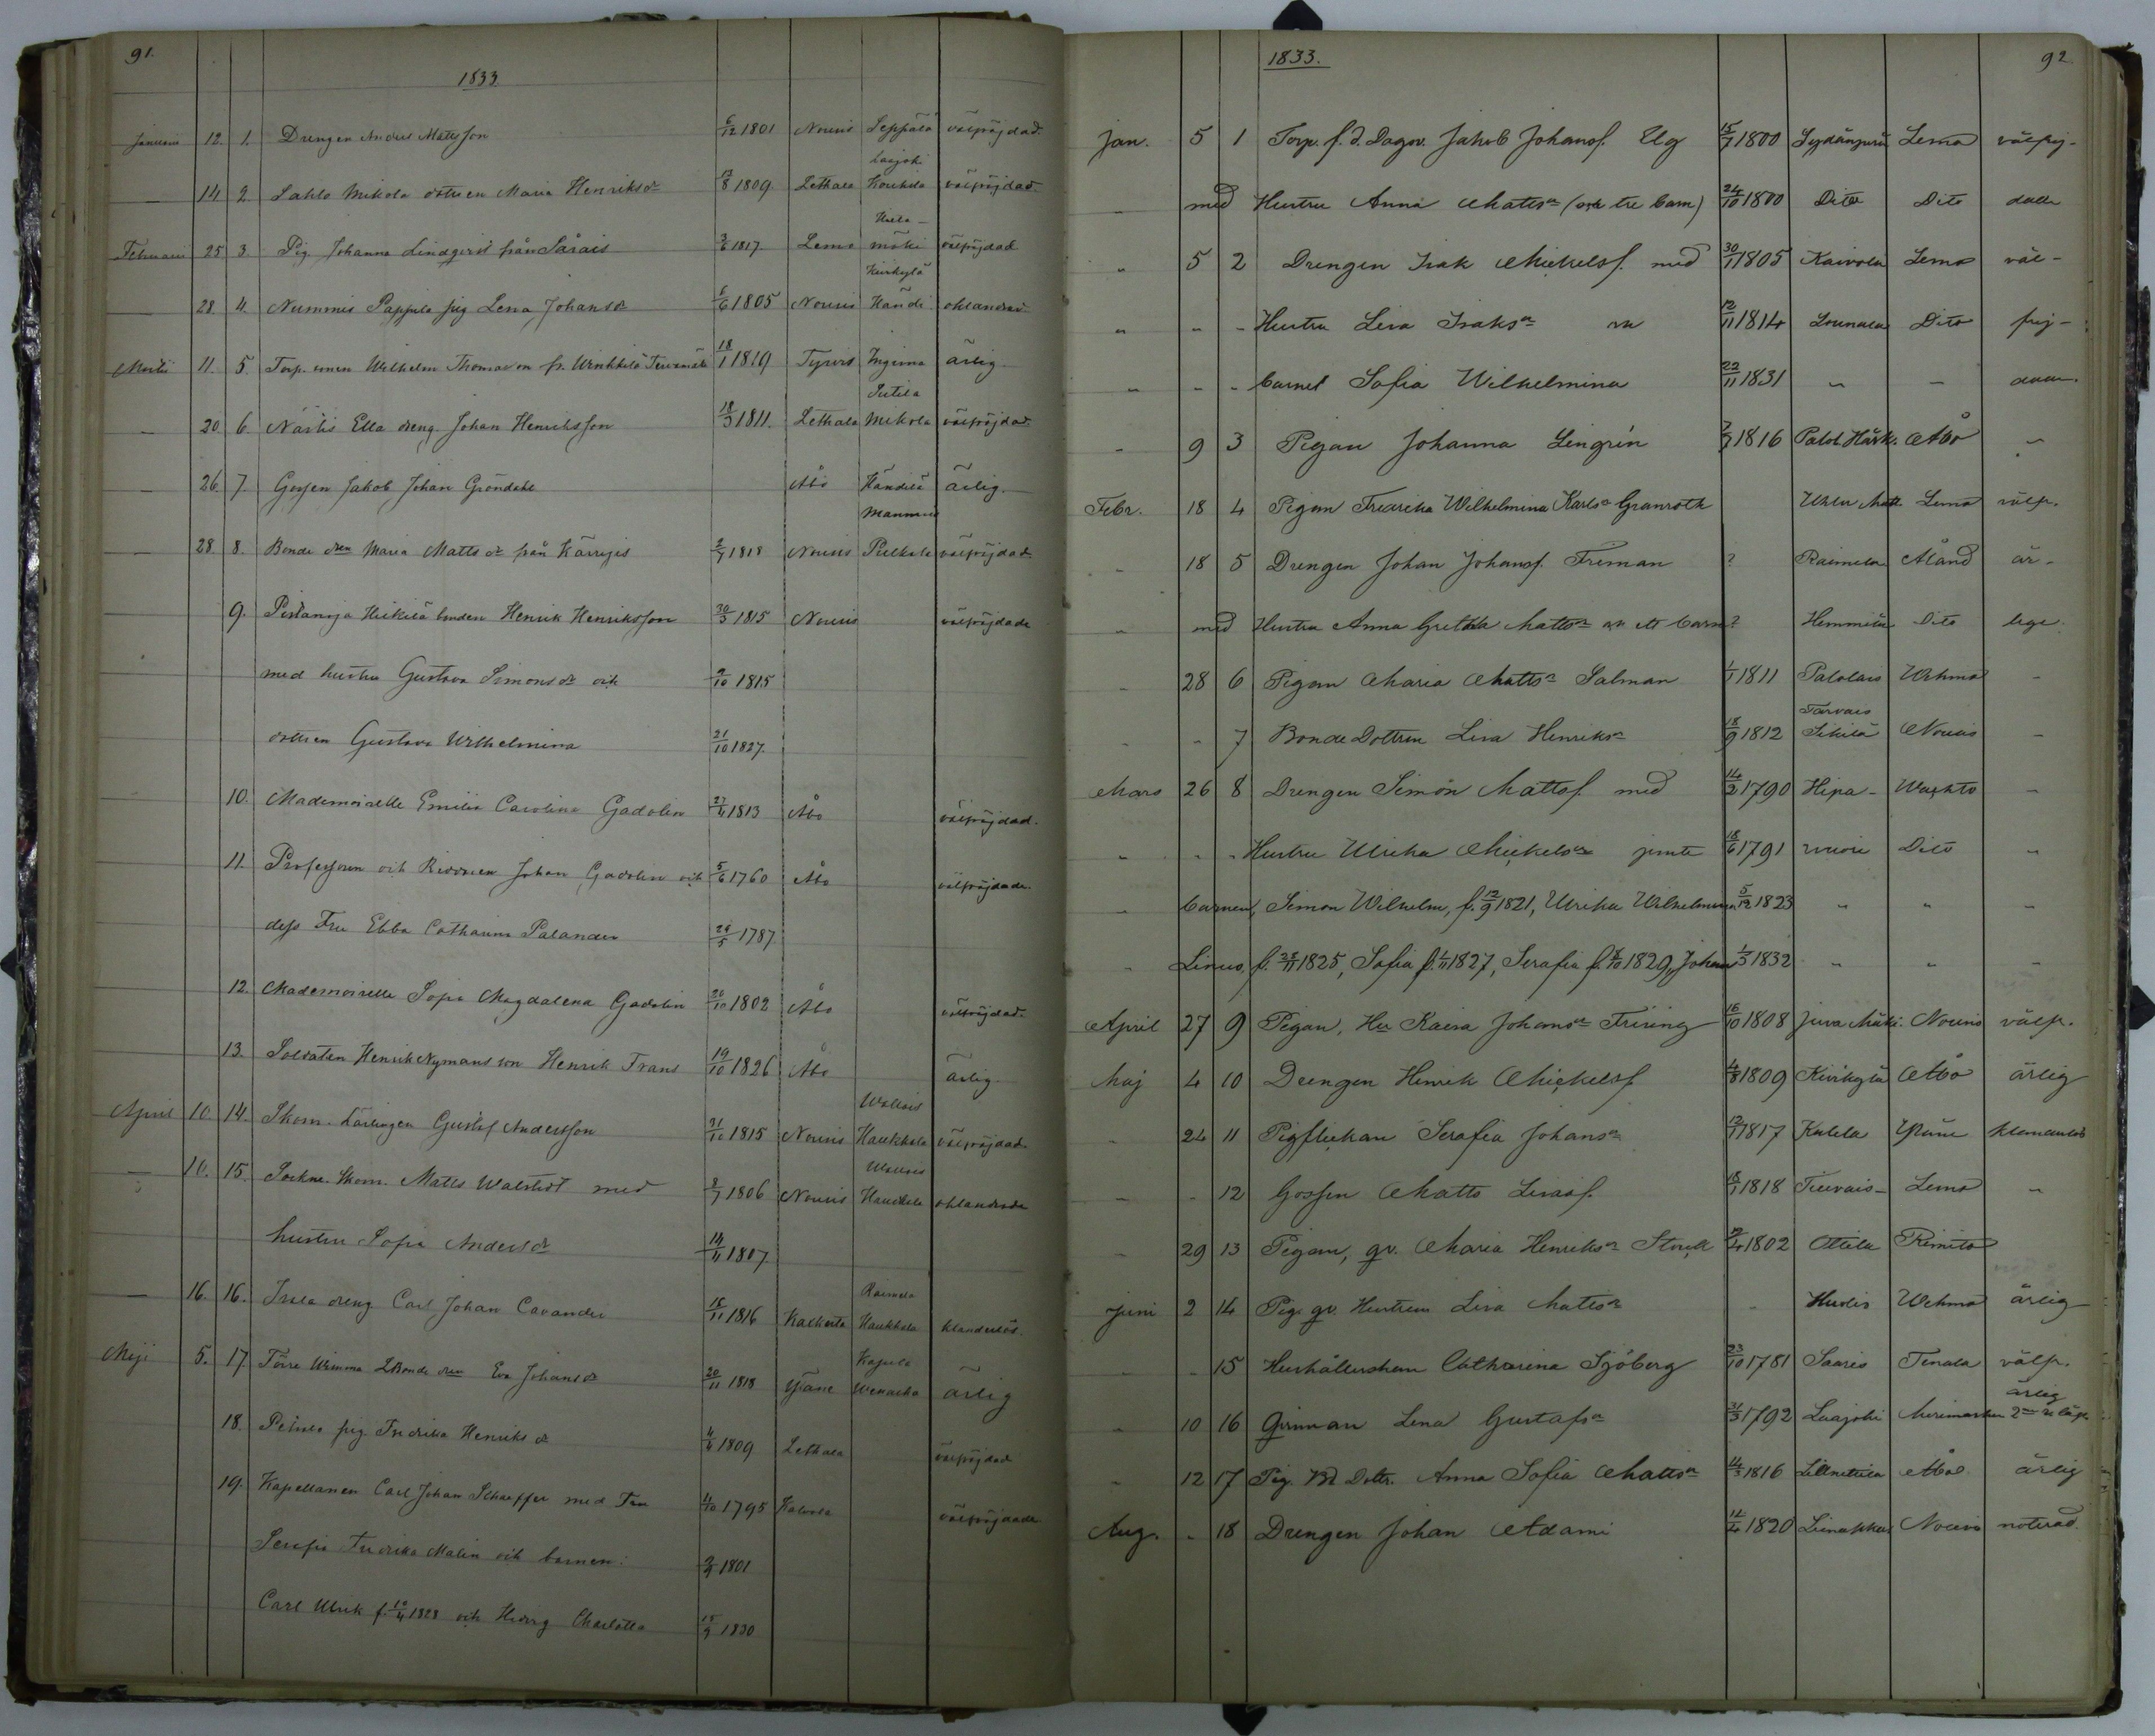 91.
1833.
Januari 12. 1. Drengen Anders Mattsson 6/12 1801 Nousis Seppälä välfrejdad.
Laajoki
— 14 2. Sahlo Mikola dottren Maria Henriksdr 13/8 1809 Lethala Koukila välfrejdad.
Februari 25 3. Pig. Johanna Lindqvist från Särais 3/6 1817. Lemo mäki välfrejdad
Kerkylä
— 28 4. Nummis Pappila pig Lena Johansdr 6/6 1805 Nousis Handi oklandrad.
Martii 11. 5. Torp. Wilhelm Thomasson fr. 18/1 1819 Tyrvis ärlig.
— 20. 6. Ella dreng. Johan Henriksson 18/3 1811. Lethala Mikola välfrejdad
— 26. 7. Gossen Jakob Johan Gröndahl Åbo Händilä ärlig.
— 28. 8. Bonde dren Maria Mattsdr från Kärrijis 2/7 1818 Nousis välfrejdad
9. Heikilä bonden Henrik Henriksson 30/3 1815 Nousis välfrejdade
med hustru Gustava Simonsdr och 9/10 1815
dottren Gustava Wilhelmina 21/10 1827.
10. Mademoiselle Emilia Carolina Gadolin 27/4 1813 Åbo välfrejdad.
11. Professoren och Riddaren Johan Gadolin och 5/6 1760 Åbo välfrejdade.
dess Fru Ebba Catharina Palander 28/5 1787.
12. Mademoiselle Sofia Magdalena Gadolin 26/10 1802 Åbo välfrejdad.
13. Soldaten Henrik Nymans son Henrik Frans 19/10 1826 Åbo ärlig.
Wallais
April 10. 14. Skom. Lärlingen Gustaf Andersson 31/12 1815 Nousis Haukkala välfrejdad.
Wallais
— 10. 15. Sockne Skom. Matts Walstedt med 8/7 1806 Nousis Haukkala oklandrade
hustru Sofia Andersdr 14/4 1807.
Raimela
— 16. 16. dreng Carl Johan Cavander 15/11 1816 Kalkerta Haukkala klanderlös.
Maji 5. 17. Bonde dren Eva Johansdr 20/11 1818 Yläne ärlig
18. pig. Fredrika Henriksdr 4/6 1809 Lethala välfrejdad
19. Kapellanen Carl Johan Schaeffer med Fru 4/10 1795 Kalvola välfrejdade
Serafia Fredrika Malin och barnen: 2/9 1801
Carl Ulrik f. 10/4 1828 och Hedvig Charlotta 15/9 1830
1833.
92.
Jan. 5 1 Torp. f.d. Dagsv. Jakob Johansf. Elg 15/7 1800 Lemo välfrej-
" med Hustru Anna Mattsdr (och tre barn) 24/10 1800 Dito Dito dade
" 5 2 Drengen Isak Michelsf. med 30/11 1805 Kaivola Lemo väl-
" " - Hustru Lisa Isaksdr och 12/11 1814 Lounala Dito frej-
" - - barnet Sofia Wilhelmina 22/11 1831 " - dade.
" 9 3 Pigan Johanna Lingrén 7/7 1816 Åbo "
Febr. 18 4 Pigan Fredrika Wilhelmina Karlsdr Granroth Lemo välfr.
" 18 5 Drengen Johan Johansf. Friman ? Raimela Åland är-
" med Hustru Anna Gretha Mattsdr och ett barn ? Hemmila Dito lige.
" 28 6 Pigan Maria Mattsdr Salman 1/1 1811 Palolais Wehmo -
Tarvais
" " 7 Bonde Dottren Lisa Henriksdr 18/9 1812 Sikilä Nousis -
Mars 26 8 Drengen Simon Mattsf. med 14/2 1790 Hipa- Wachto -
" " " Hustru Ulrika Michelsdr jemte 18/6 1791 vuori Dito "
" barnen, Simon Wilhelm, f. 12/9 1821, Ulrika Wilhelmina 5/12 1823 " " "
" Linus, f. 25/11 1825, Sofia f. 1/11 1827, Serafia f. 8/10 1829, Johan 1/3 1832 " " "
April 27 9 Pigan, Hu Kaisa Johansdr Friring 16/10 1808 Juva Mäki. Nousis välfr.
Maj 4 10 Drengen Henrik Michelsf. 4/8 1809 Kivikylä Åbo ärlig
" 24 11 Pigflickan Serafia Johansdr 12/7 1817 Kalela Yläne klanderlös
" - 12 Gossen Matts Lisasf. 18/1 1818 Tiervais- Lemo "
" 29 13 Pigan, qv. Maria Henriksdr 9/4 1802 Ottila Rimito
Juni 2 14 Pig. qv. Hustrun Lisa Mattsdr - Hurlis Wehmo ärlig
" - 15 Hushållerskan Catharina Sjöberg 23/10 1781 Saaris Tenala välfr.
ärlig
" 10 16 Qvinnan Lena Gustafsdr 31/3 1792 Laajoki Merimasku
" 12 17 Pig. Bd Dottr. Anna Sofia Mattsdr 14/3 1816 Åbo ärlig
Aug. - 18 Drengen Johan Adami 14/4 1820 Linakkala Nousis noterad.